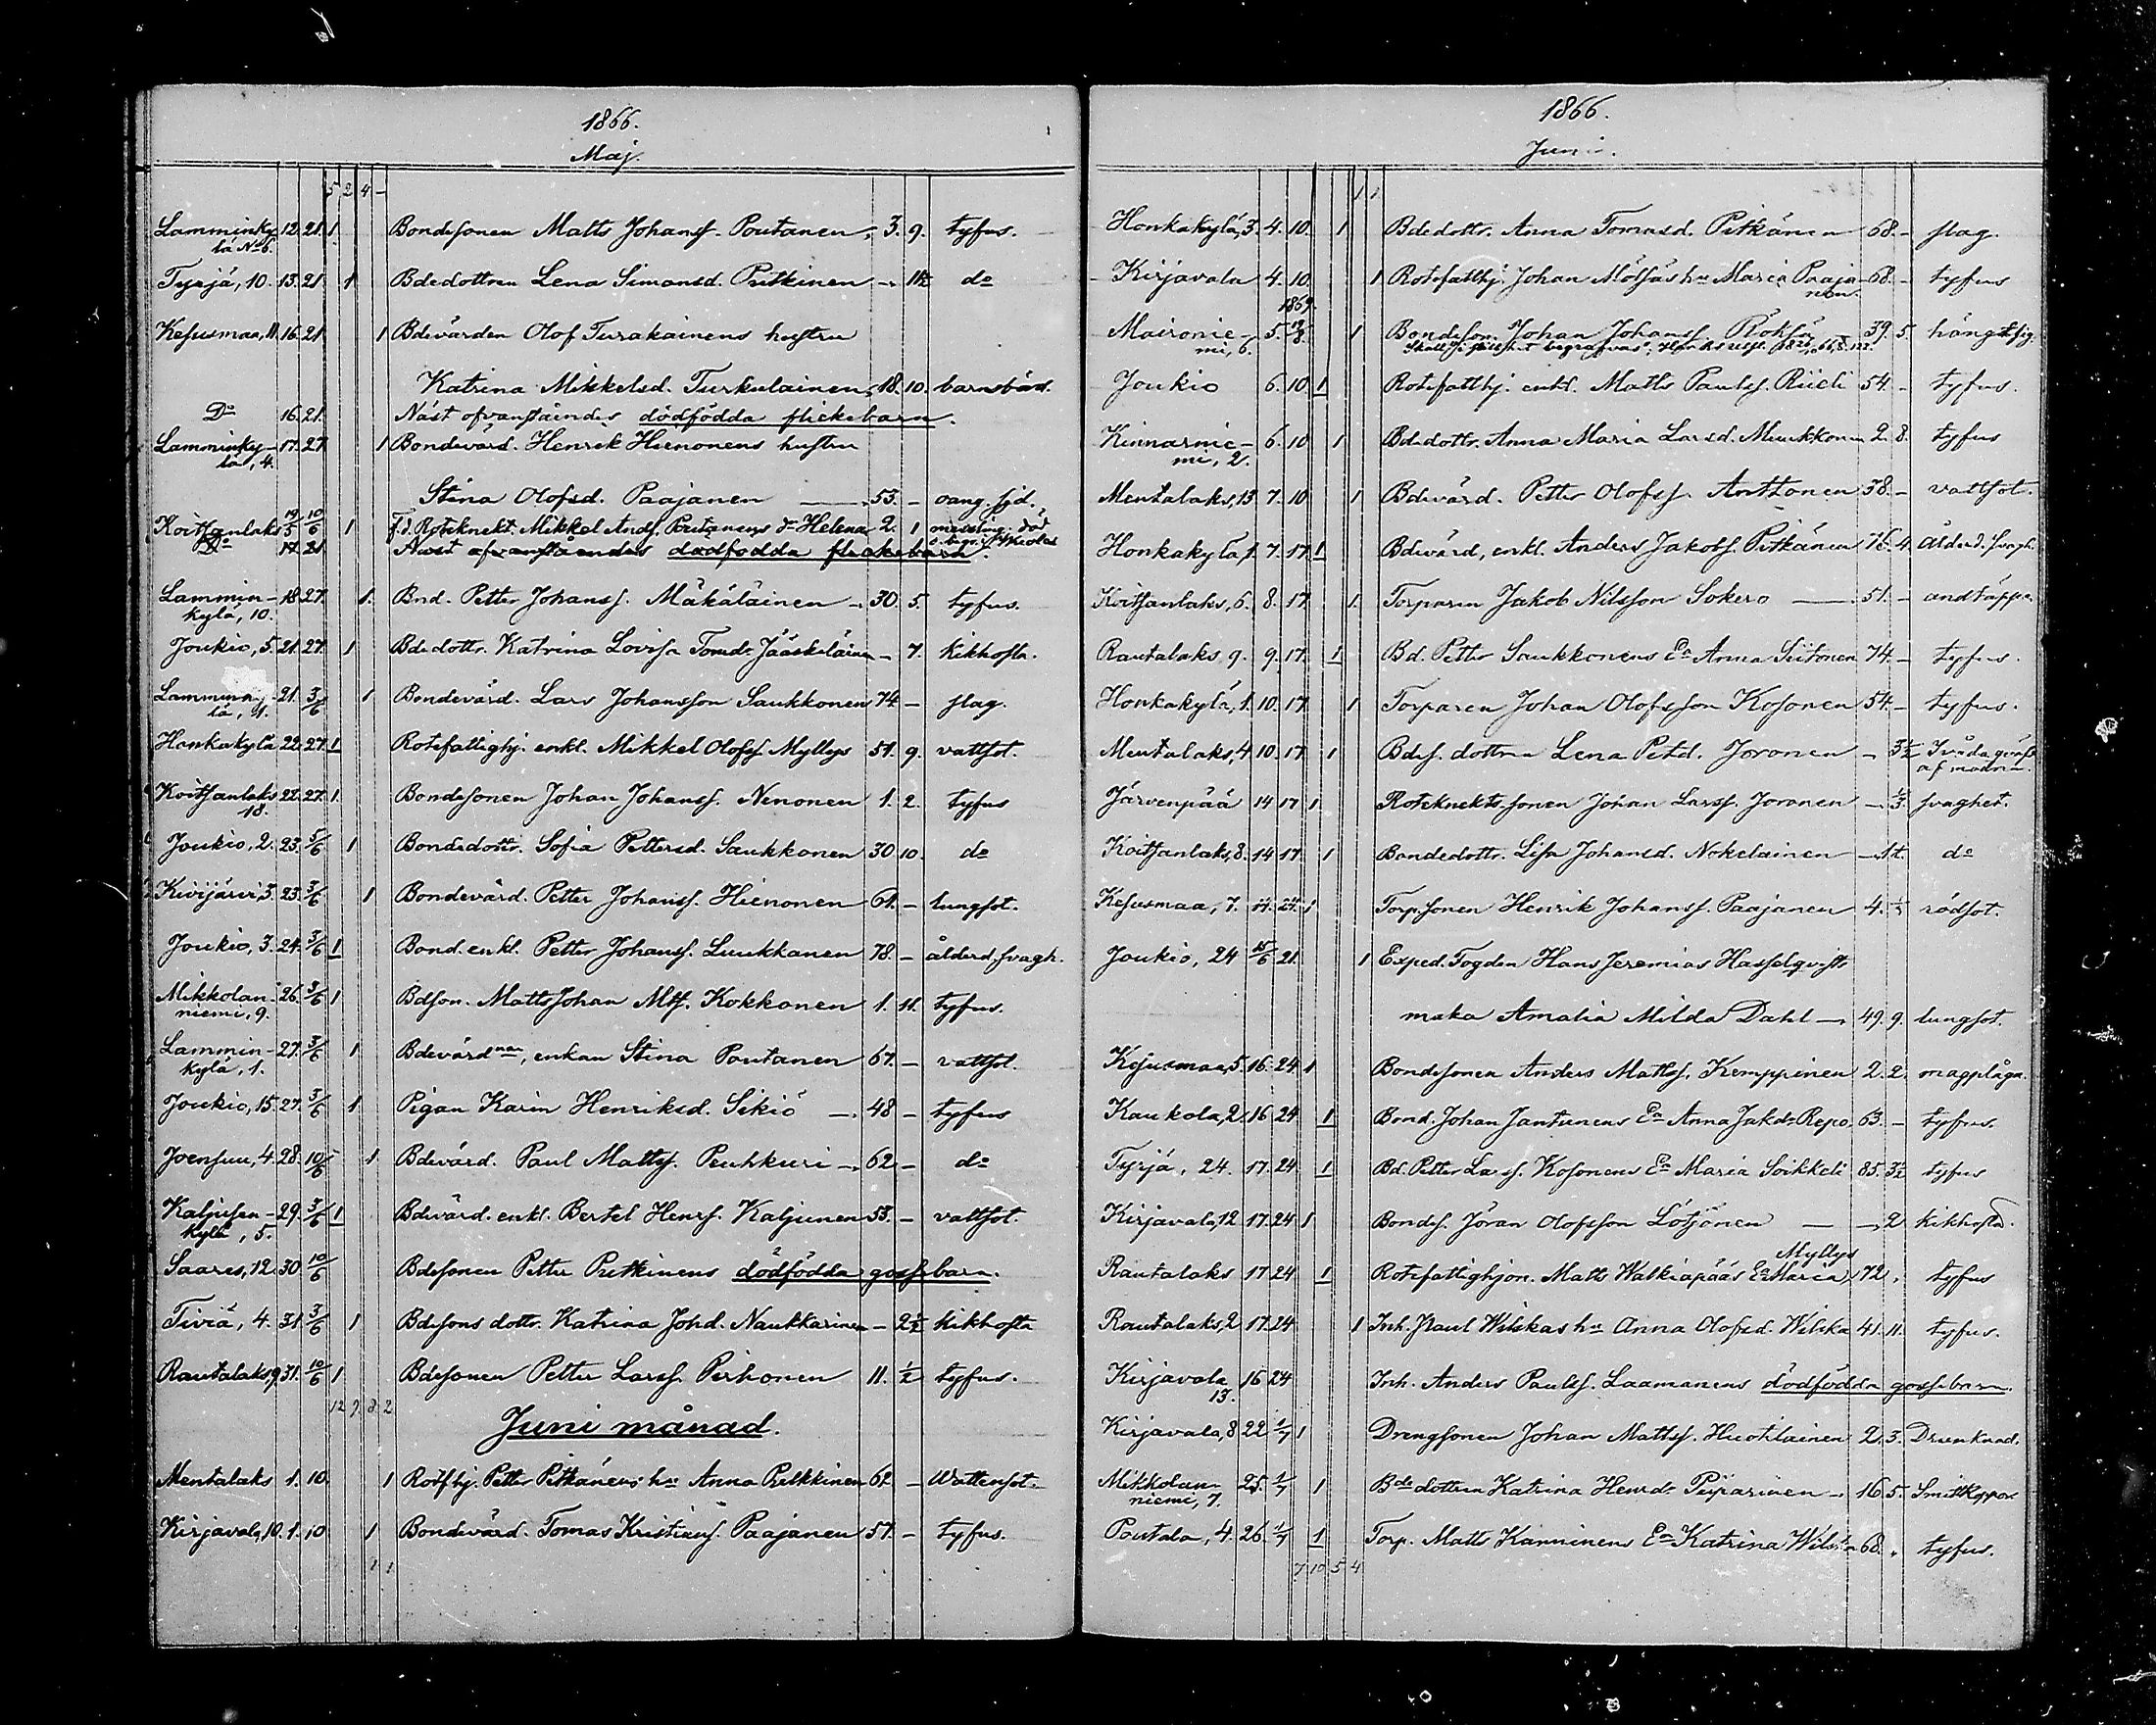 1866.
Maj.
5 2 4 -
Lamminky- 12. 21. 1. Bondesonen Matts Johanss. Poutanen, 3. 9. tyfus.
lä No 6.
Tyrjä, 10. 13. 21. 1 Bdedottren Lena Simonsd. Pritkinen - do
Kesusmaa, 11. 16. 21. 1 Bdevärden Olof Turakainens hustru
Katrina Mikkelsd. Turkulainen, 18. 10. barnsbörd.
Do 16. 21. Näst ofvanstående's dödfödda flickebarn.
Lamminky- 17. 27. 1 Bondevärd. Henrik Hienonens hustru
lä, 4.
Stina Olofsd. Paajanen 53. -
Koitsanlaks 19/5 10/6 1 F.d. Roteknekt. Mikkel Ands. Poutanens dr Helena 2. 1 messling. död
Do 17. 21. Näst ofvanståendes dödfödda flickebarn.
Lammin- 18. 27. 1. Bnd. Petter Johanss. Mäkäläinen 30. 5. tyfus.
kylä, 10.
Joukio, 5. 21. 27. 1 Bdedottr. Katrina Lovisa Tomdr Jääskeläinen - 7. Kikhosta.
Lamminky- 21. 3/6 1 Bondevärd. Lars Johansson Saukkonen 74 - slag.
lä, 1.
Honkakylä 22. 27. 1 Rotefattighj. enkl. Mikkel Olofss. Myllys 51. 9. vattsot.
Koitsanlaks 22. 27. 1. Bondesonen Johan Johanss. Nenonen 1. 2. tyfus
18.
Joukio, 2. 23. 5/6 1 Bondedottr. Sofia Pettersd. Saukkonen 30 10. do
Kivijärvi, 3. 23. 3/6 1 Bondevärd. Petter Johanss. Hienonen 61. - lungsot.
Joukio, 3. 24. 3/6 1 Bond. enkl. Petter Johanss. Luukkanen 78. - ålderd. svagh.
Mikkolan- 26. 3/6 1 Bdson. Matts Johan Mts. Kokkonen 1. 11. tyfus.
niemi, 9.
Lammin- 27. 3/6 1 Bdevärdnan, enkan Stina Poutanen 67. - vattsot.
kylä, 1.
Joukio, 15. 27. 3/6 1 Pigan Karin Henriksd. Sikiö 48 - tyfus
Joensuu, 4. 28. 10/6 1. Bdevärd. Paul Mattss. Peuhkuri 62 - do
Kaljusen- 29. 3/6 1 Bdevärd. enkl. Bertel Henrs. Kaljunen 53. - vattsot.
kylä, 5.
Saares, 12. 30. 10/6 Bdesonen Petter Pretkinens dödfödda gossebarn.
Tiviä, 4. 31. 3/6 1 Bdesons dottr. Katrina Johd. Naukkarinen - 2 1/2 kikhosta
Rautalaks, 9. 31. 10/6 1 Bdesonen Petter Larss. Pirhonen 11. 1/2 tyfus.
12 9 8 2
Juni månad.
Mentalaks 1. 10. 1 Rotfhj. Petter Pitkänens hu Anna Pulkkinen 62 - Wattensot.
Kirjavala, 10. 1. 10 1 Bondevärd. Tomas Kristians. Paajanen 57. - tyfus.
1 1
1866.
Juni.
1 1
Honkakylä, 3. 4. 10. 1 Bdedottr. Anna Tomasd. Pitkänen 68. - slag.
Kirjavala 4. 10. 1 Rotefattighj. Johan Mölsäs hu Maria Paaja- 68. - tyfus
nen.
1869.
Maironie- 5. 1 Bondeson. Johan Johanss. Röksä 39. 5. hängt sig.
mi, 6.
Joukio 6. 10 1 Rotefattighj. enkl. Matts Paulss. Riieli 54. - tyfus.
Kinnarnie- 6. 10 1. Bdedottr. Anna Maria Larsd. Muukkonen 2. 8. tyfus
mi, 2.
Mentalaks, 13. 7. 10 1 Bdevärd. Petter Olofss. Anttonen 38. - vattsot.
Honkakylä, 1. 7. 17. 1 Bdevärd, enkl. Anders Jakobs. Pitkänen 76. 4. Ålderd. svagh.
Koitsanlaks, 6. 8. 17. 1. Torparen Jakob Nilsson Sokero 51. - andtäppa.
Rautalaks, 9. 9. 17. 1 Bd. Petter Saukkonens Ea Anna Siitonen 74. - tyfus.
Honkakylä, 1. 10. 17. 1 Torparen Johan Olofsson Kosonen 54. - tyfus.
Mentalaks, 4. 10. 17. 1 Bdes. dottren Lena Petd. Joronen - 3 1/2 I våda qväfd
af modren.
Järvenpää 14 17 1 Roteknekts sonen Johan Larss. Joronen - 1/3. svaghet.
Koitsanlaks, 8. 14 17. 1 Bondedottr. Lisa Johansd. Nokelainen - 1 t. do
Kesusmaa, 7. 14. 24. 1 Torp. sonen Henrik Johanss. Paajanen 4. rödsot.
Joukio, 24 15/6 21. 1 Exped. Fogden Hans Jeremias Hasselqvists
maka Amalia Milda Dahl 49. 9. lungsot.
Kesusmaa, 5. 16. 24 1 Bondesonen Anders Mattss. Kemppinen 2. 2. magplåga.
Kaukola, 2. 16 24 1 Bond. Johan Jantunens Ea Anna Jakdr Repo 63. - tyfus.
Tyrjä, 24. 17. 24 1 Bd. Petter Larss. Kosonens Ea Maria Soikkeli 85. 3 1/2 tyfus
Kirjavala, 12 17. 24 1 Bondes. Jöran Olofsson Lötjönen - 2 kikhosta.
Myllys
Rautalaks 17 24 1 Rotefattighjon. Matts Walkiapääs Ea Maria 72. tyfus
Rautalaks, 2 17. 24 1 Inh. Paul Wilskas hu Anna Olofsd. Wilska 41. 11. tyfus.
Kirjavala 16 24 Inh. Anders Paulss. Laamanens dödfödda gossebarn.
13.
Kirjavala, 8 22 1/7 1 Drengsonen Johan Mattss. Huotilainen 2. 3. Drunknad.
Mikkolan- 25. 1/7 1 Bdedottren Katrina Henrdr Piiparinen 16. 5. Smittkoppor
niemi, 7.
Poutala, 4. 26. 1/7 1 Torp. Matts Kanninens Ea Katrina 68. tyfus.
7 10 5 4